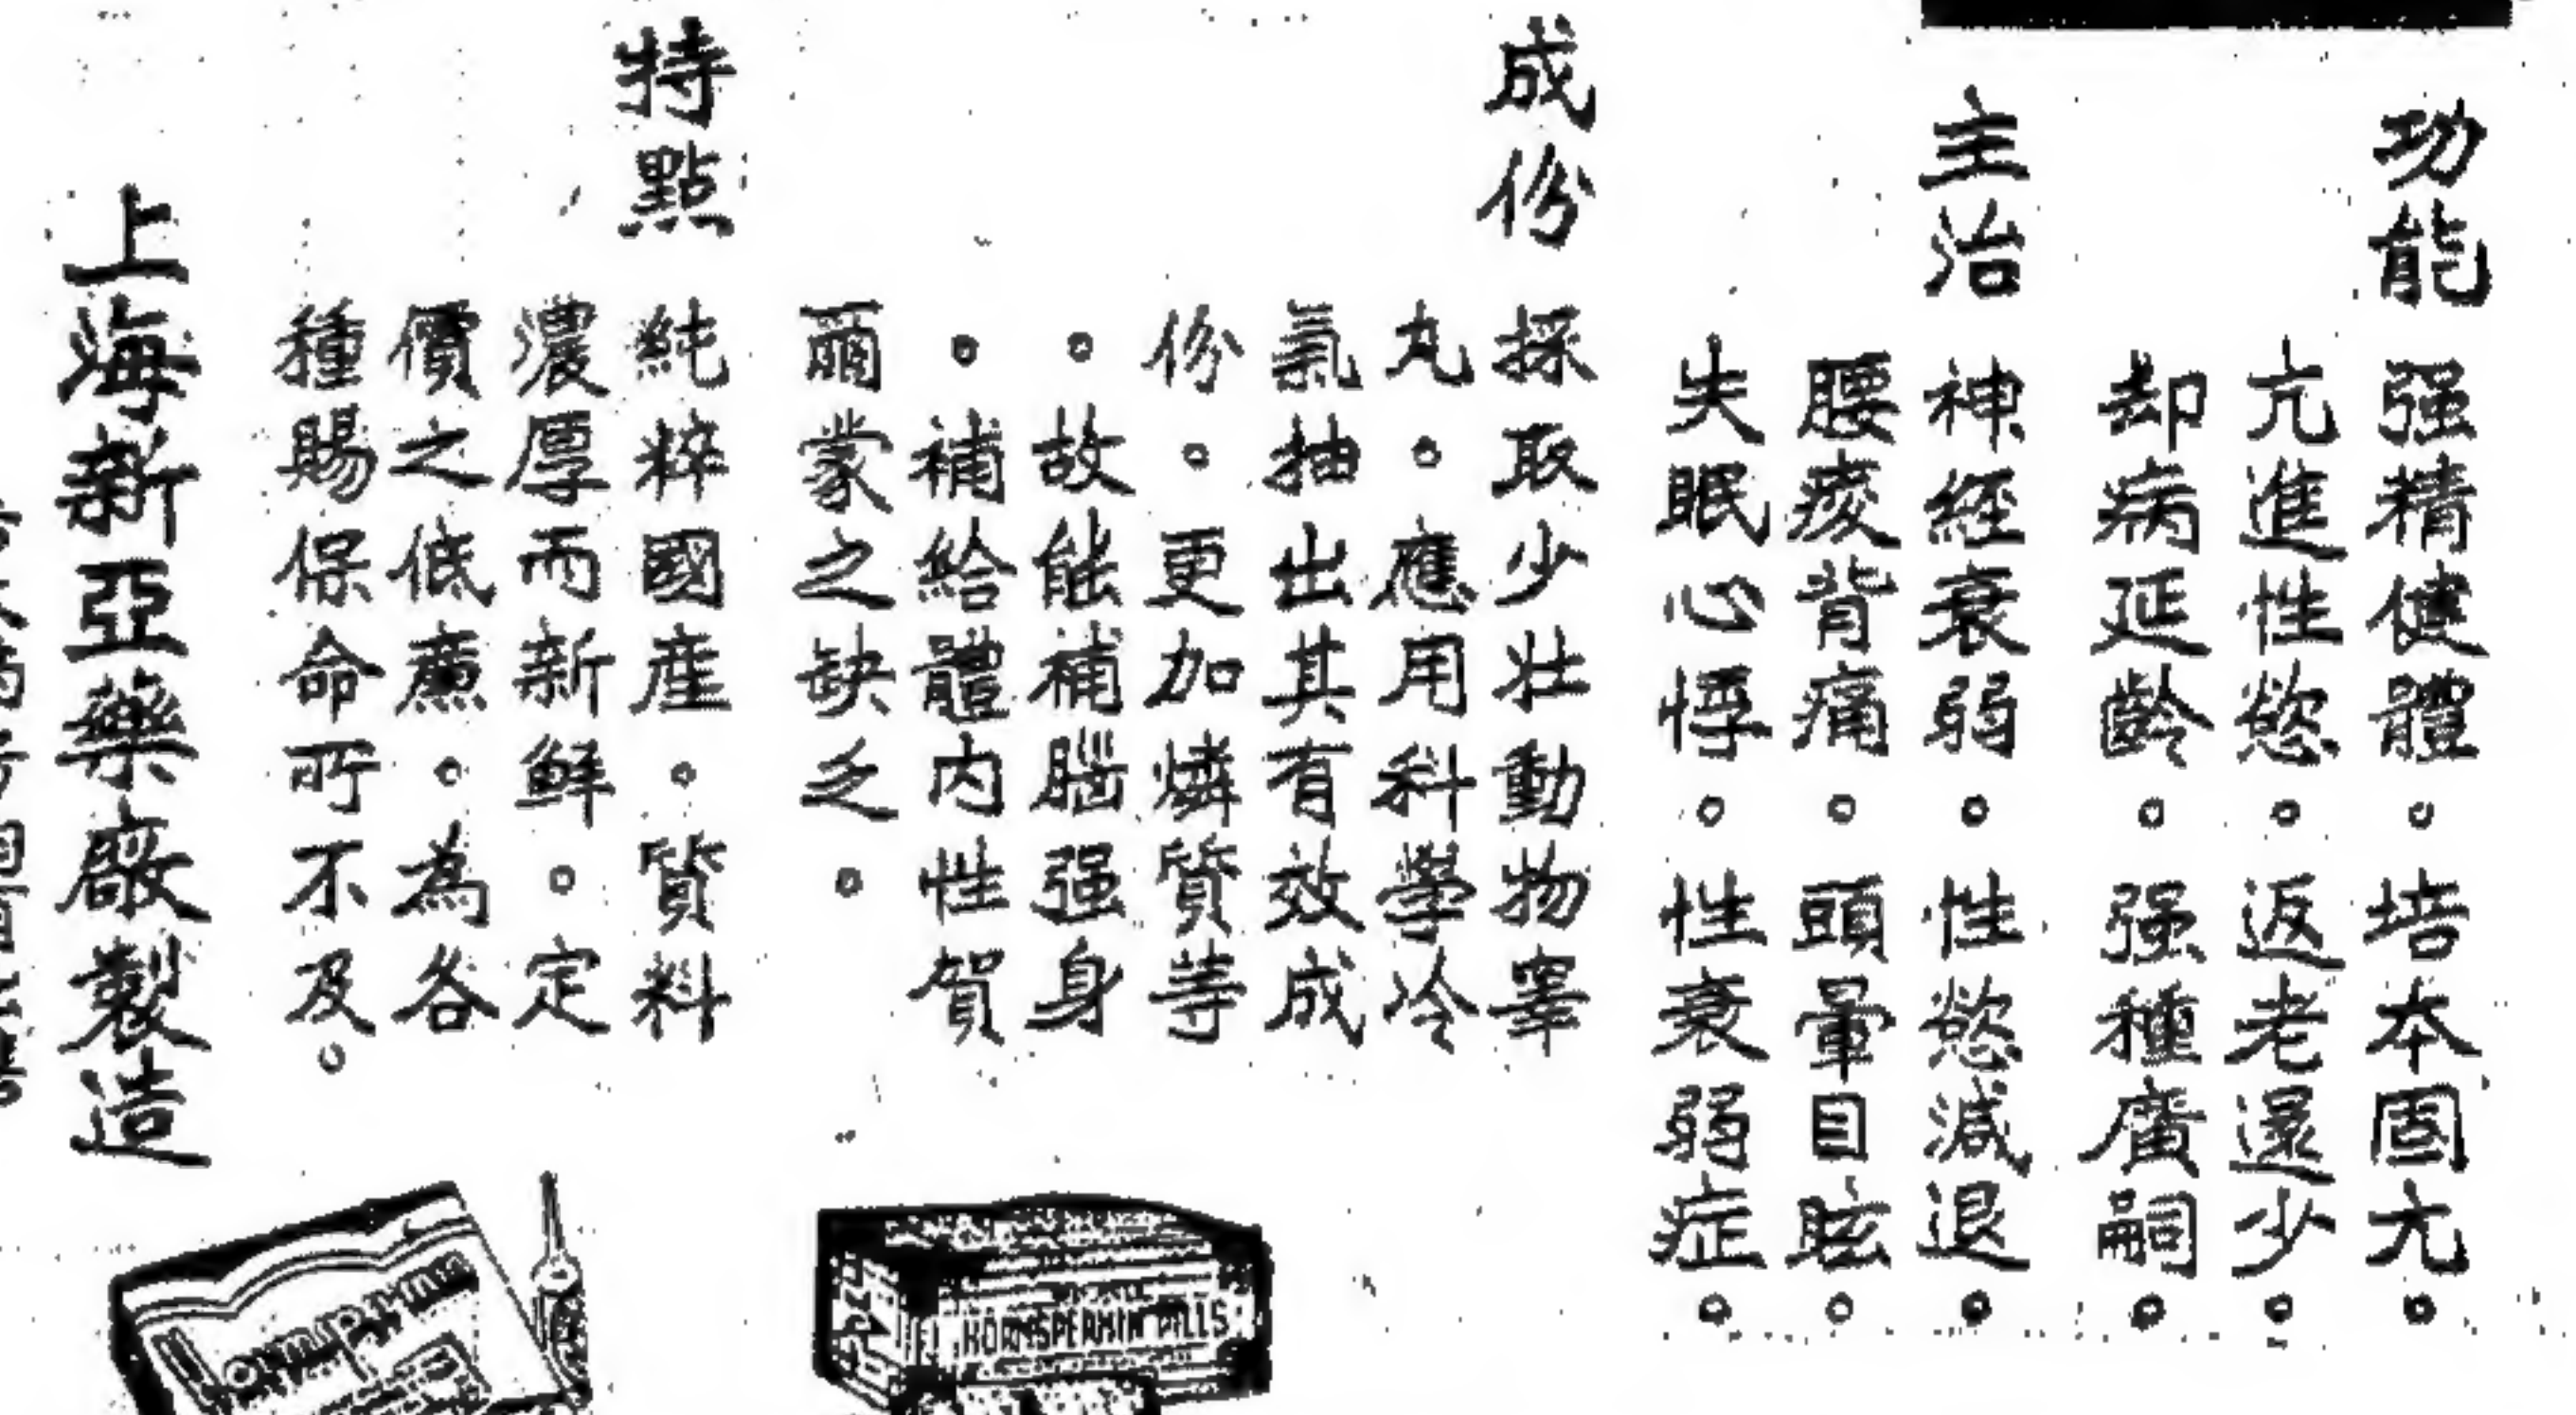 功能
强精健體。培本固元。
亢進性慾。返老還少。
却病延齡。强種廣嗣。
主治
神経衰弱。性慾減退。
腰痠背痛。頭暈目眩。
失眠心悸。性衰弱症。
成份
採取少壮動物睾
丸。應用科學冷
氣抽出其有效成
份。更加燐質等
。故能補腦强身
。補給體内性賀
爾蒙之缺乏。
特點
純粹國産。質料
濃厚而新鮮。定
價之低廉。為各
種賜保命所不及。
上海新亞藥廠製造
Hormspermin
HORMSPERMIN PILLS